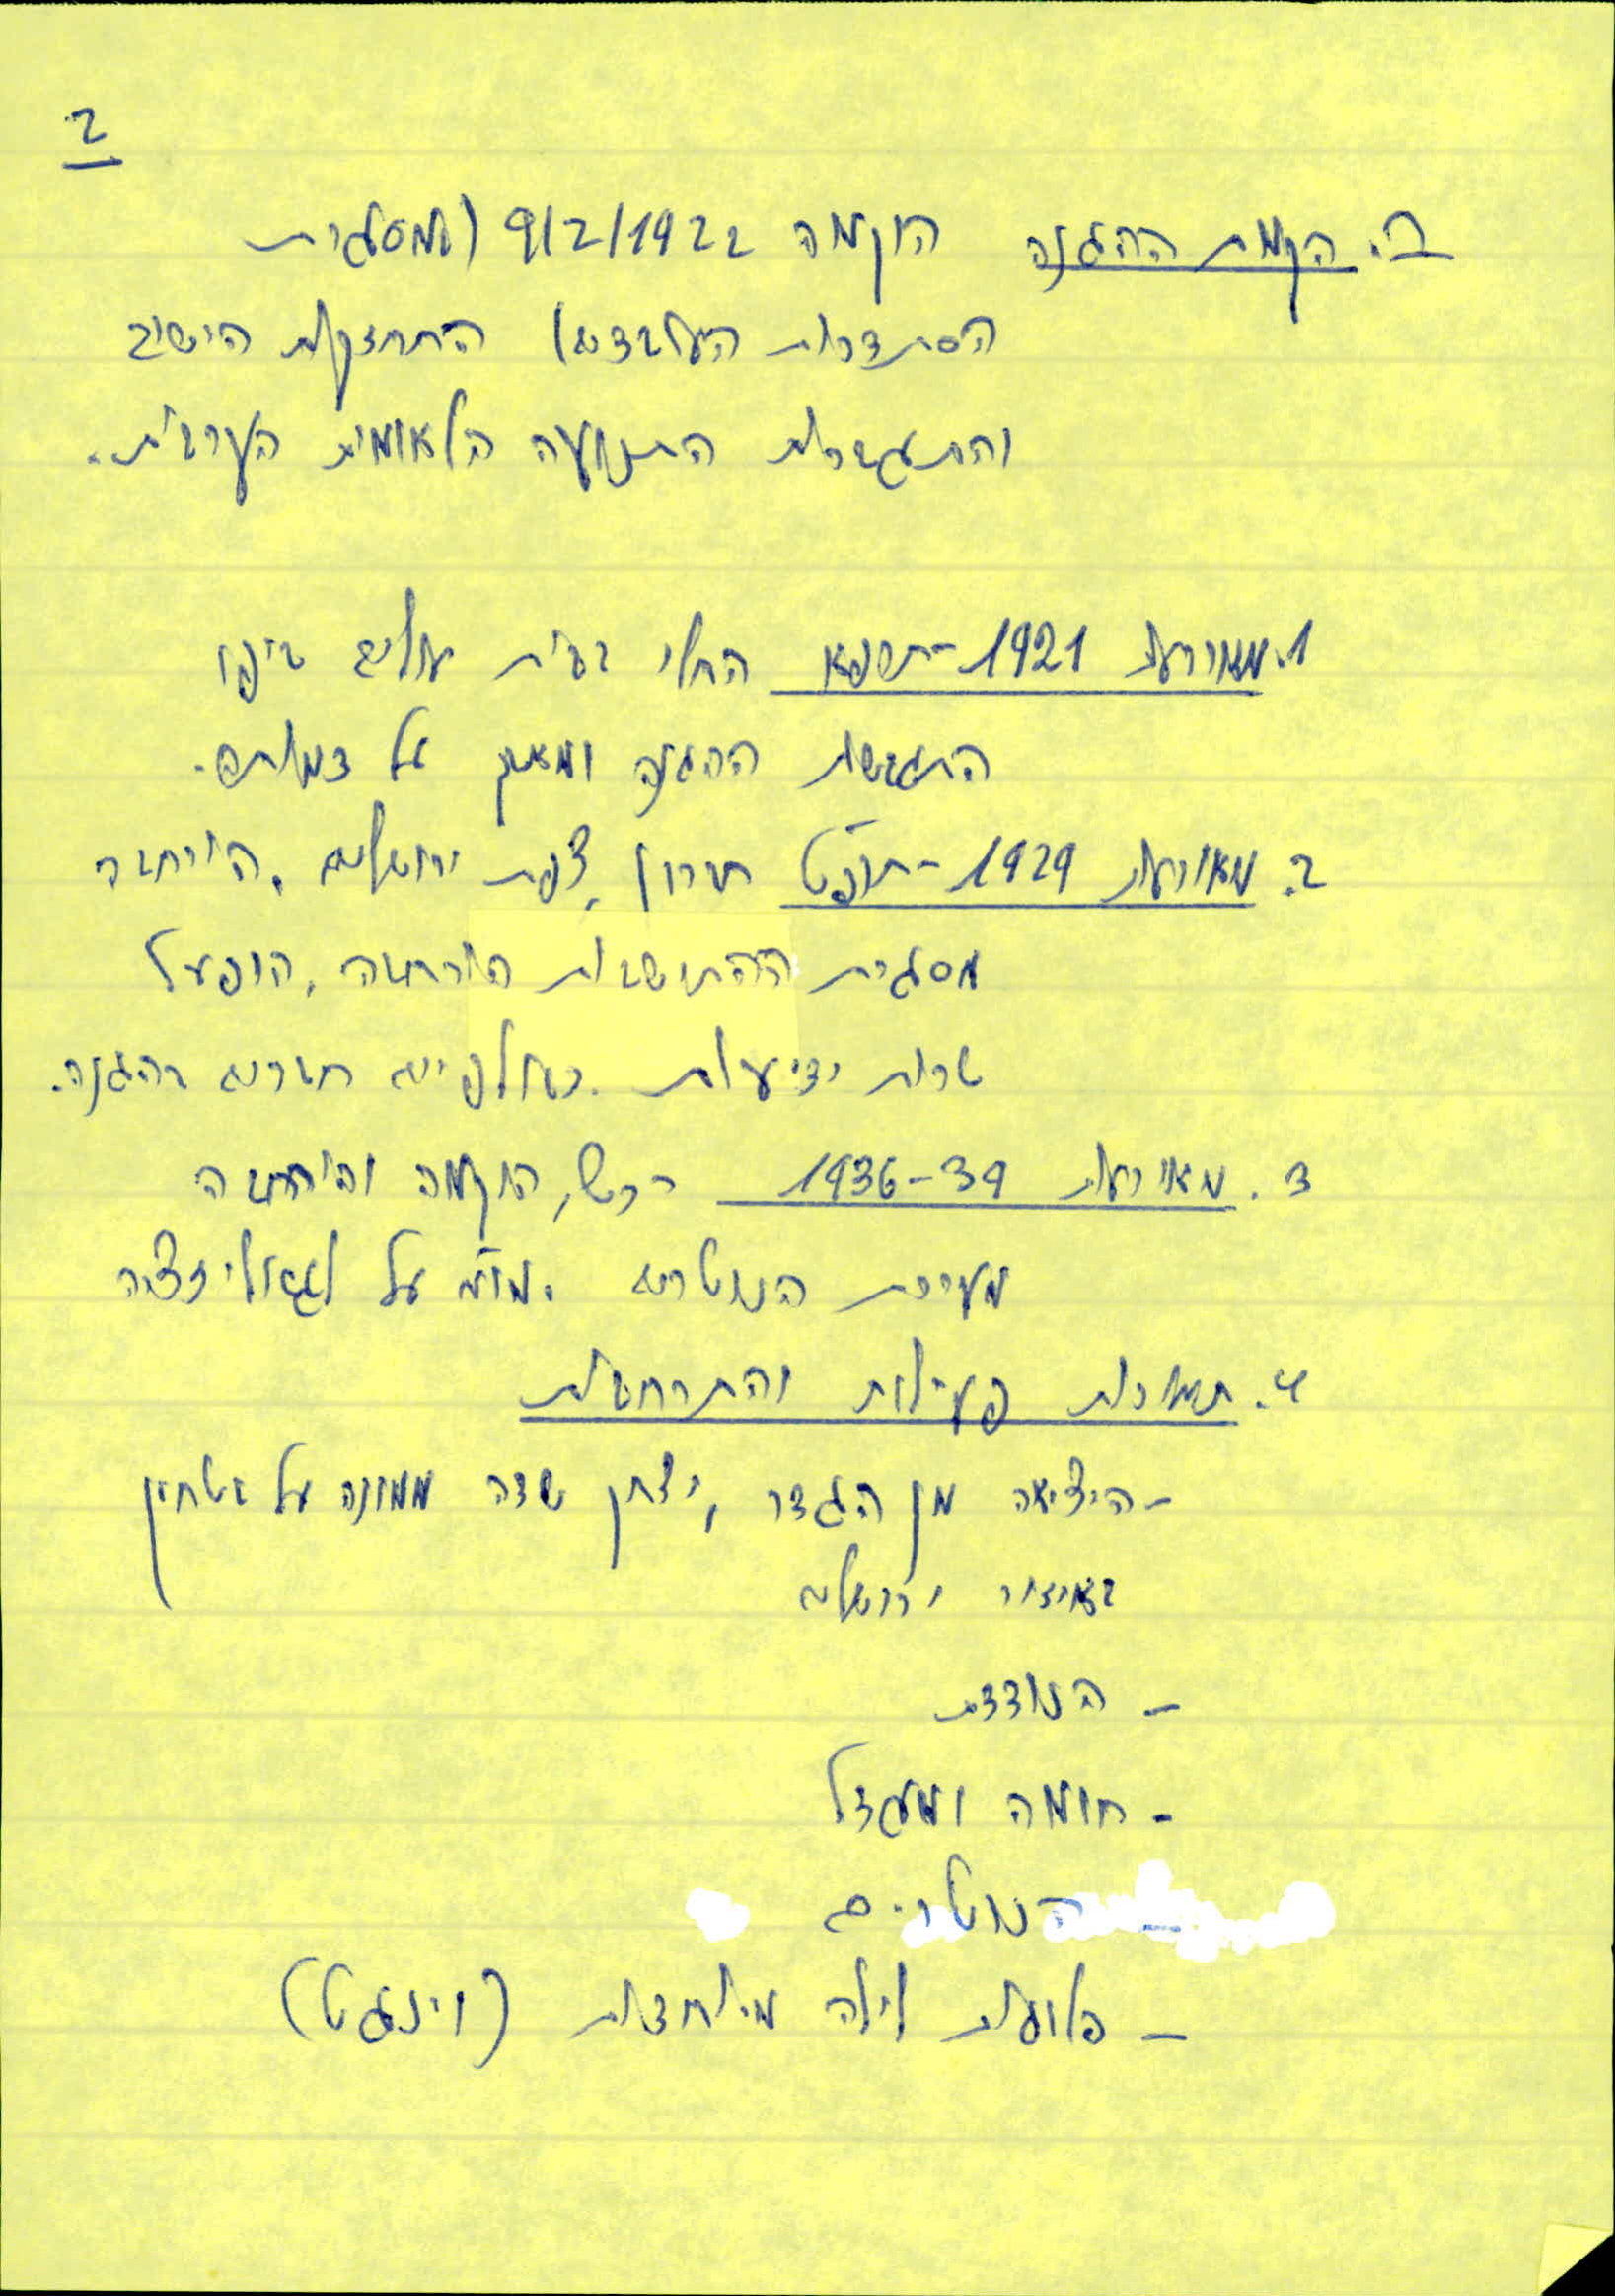 2
ב. הקמת ההגנה הוקמה 9/2/1922 (במסגרת
הסתדרות העובדים) התחזקות הישוב
והתגברות התנועה הלאומית הערבית.
1. מאורעות 1921-תרפא החלו בבית עולים ביפו
התגבשות ההגנה ומאבק על דמותה.
2. מאורעות 1929-תרפ״ט חברון, צפת ירושלים. הורחבה
מסגרת ההתישבות הורחבה, הופעל
שרות ידיעות. כאלפיים חברים בהגנה.
3. מאורעות 1936-39 רכש, הוקמה והורחבה
מערכת הנוטרים. מו״מ על לגאליזציה
4. תמורות פעילות והתרחבות
- היציאה מן הגדר, יצחק שדה ממונה על בטחון
באיזור ירושלים
- הנודדת
- חומה ומגדל
- הנוטרים
- פלוגות לילה מיוחדות (וינגט)